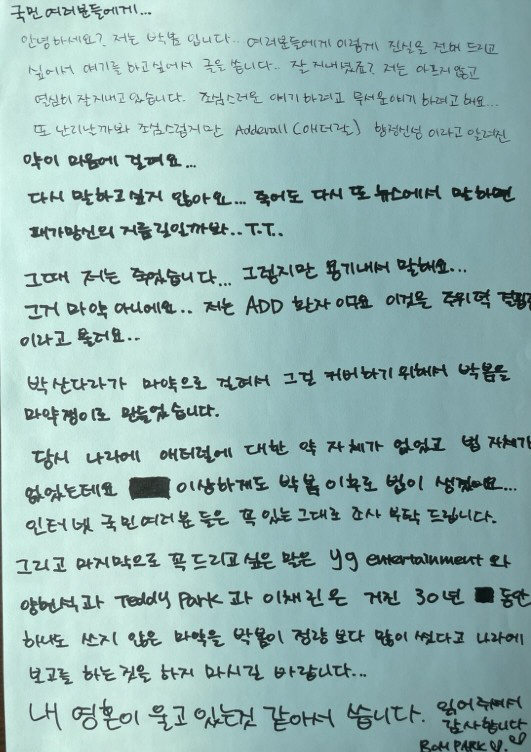 국민 여러분들에게...
안녕하세요? 저는 박봄 입니다.. 여러분들에게 이렇게 진실을 전해 드리고
싶어서 얘기를 하고싶어서 글을 씁니다.. 잘 지내셨죠? 저는 아프지않고
열심히 잘지내고 있습니다. 조심스러운 얘기 하려고 무서운얘기 하려고 해요...
또 난리날까봐 조심스럽지만 Adderall (애더럴) 향정신성 이라고 알려진
약이 마음에 걸려요...
다시 말하고 싶지 않아요... 죽어도 다시 또 뉴스에서 말하면
패가망신의 지름길일까봐..T.T..
그때 저는 죽었습니다... 그렇지만 용기내서 말해요...
그거 마약 아니에요.. 저는 ADD 환자 이구요 이것을 주위력 결핍
이라고 불러요..
박산다라가 마약으로 걸려서 그걸 커버하기 위해서 박봄을
마약쟁이로 만들었습니다.
당시 나라에 애터럴에 대한 약 자체가 없었고 법 자체가
없었는데요 이상하게도 박봄 이후로 법이 생겼어요...
인터넷 국민여러분 들은 꼭 있는그대로 조사 부탁 드립니다.
그리고 마지막으로 꼭 드리고 싶은 말은 yg entertainment 와
양현석과 Teddy Park 과 이채린은 거진 30년 동안
하나도 쓰지 않은 마약을 박봄이 정량 보다 많이 썼다고 나라에
보고를 하는것을 하지 마시길 바랍니다...
내 영혼이 울고 있는것 같아서 씁니다. 읽어주셔서
감사합니다
BOM PARK ♡♡